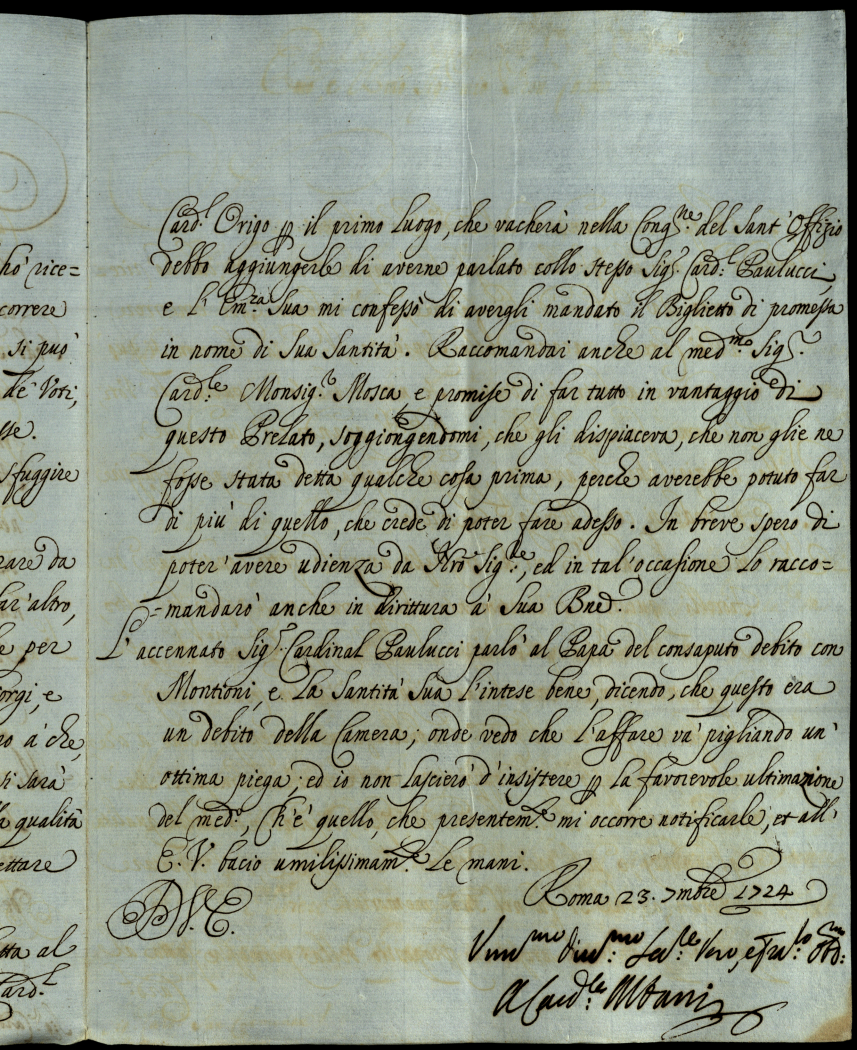 hò rice=
correre
si può
de' Voti,
sse.
sfuggire
rare da
lar'altro,
e per
orgi, e
ro à che,
si sarà
a qualità
ettare
tta al
Card.l
Card.l Origo ꝑ il primo Luogo, che vacherà nella Cong.ne del Sant'Offizio
debbo aggiungerle di averne parlato collo stesso Sig.r Card.l Paulucci,
e l'Em.za Sua mi confessò di avergli mandato il Biglietto di promessa
in nome di Sua Santità. Raccomandai anche al med.mo Sig.r
Card.le Monsig.r Mosca e promise di far tutto in vantaggio di
questo Prelato, soggiongendomi, che gli dispiaceva, che non glie ne
fosse stata detta qualche cosa prima, perche averebbe potuto far
di più di quello, che crede di poter fare adesso. In breve spero di
poter'avere udienza da Nrò Sig.re, ed in tal'occasione Lo racco=
=mandarò anche in dirittura à Sua Bned.
L'accennato Sig.r Cardinal Paulucci parlò al Papa del consaputo debito con
Montioni, e La Santità Sua l'intese bene, dicendo, che questo era
un debito della Camera; onde vedo che l'affare và pigliando un'
ottima piega; ed io non Lascierò d'insistere ꝑ la favorevole ultimazione
del med.o, Ch'è quello, che presentem.te mi occorre notificarle, et all'
E. V. bacio umilissimam.te Le mani.
Roma 23. 7mbre 1724
D. V. E.
Um.mo Div.mo Ser.re Vero, e Fra.lo
A Card.le Albani